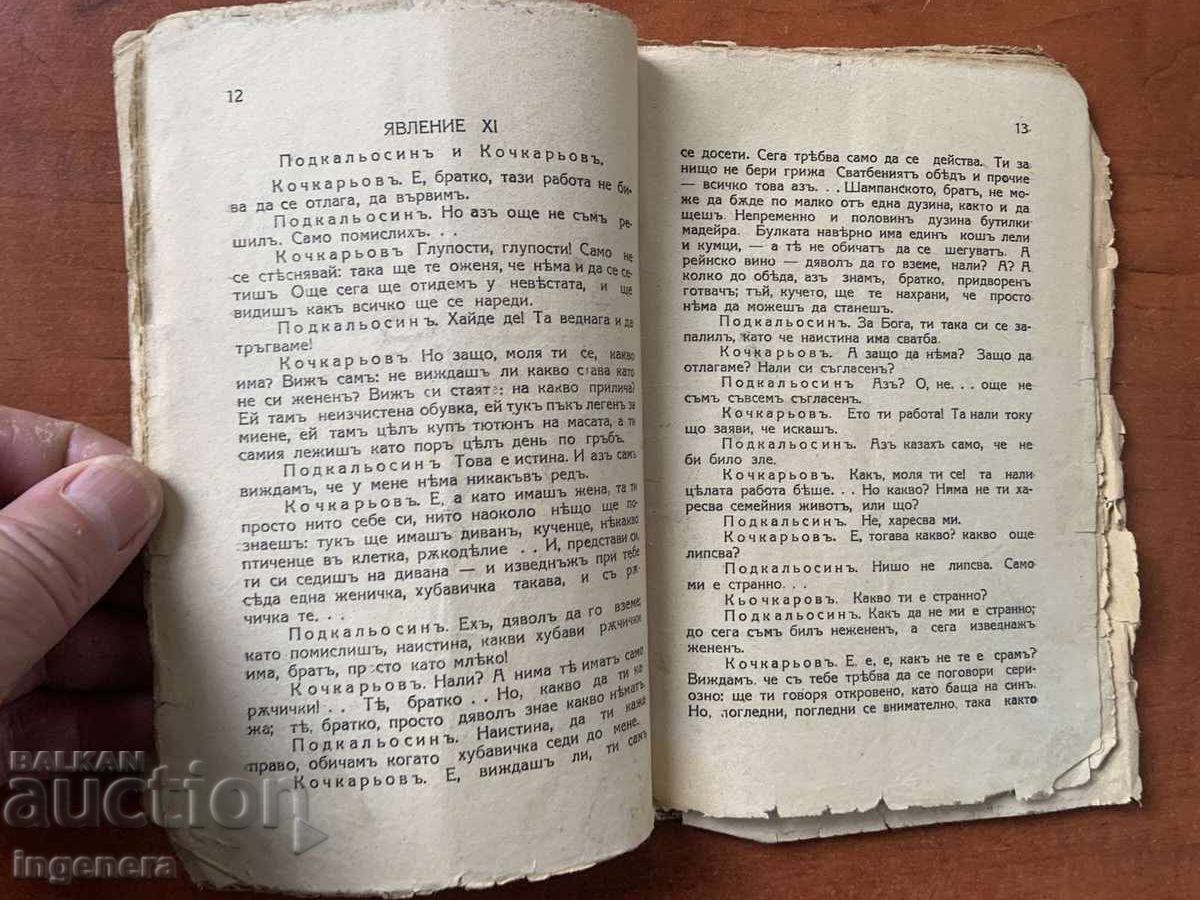 12
ЯВЛЕНИЕ XI
Подкальосинъ и Кочкарьовъ.
Кочкарьовъ. Е, братко, тази работа не би-
ва да се отлага, да вървимъ.
Подкальосинъ. Но азъ още не съмъ ре-
шилъ. Само помислихъ. . .
Кочкарьовъ Глупости, глупости! Само не
се стѣснявай: така ще те оженя, че нѣма и да се се-
тишъ Още сега ще отидемъ у невѣстата, и ще
видишъ какъ всичко ще се нареди.
Подкальосинъ. Хайде де! Та веднага и да
тръгваме!
Кочкарьовъ Но защо, моля ти се, какво
има? Вижъ самъ: не виждашъ ли какво става като
не си жененъ? Вижъ си стаята: на какво прилича?
Ей тамъ неизчистена обувка, ей тукъ пъкъ легенъ за
миене, ей тамъ цѣлъ купъ тютюнъ на масата, а ти
самия лежишъ като поръ цѣлъ день по гръбъ.
Подкальосинъ Това е истина. И азъ самъ
виждамъ, че у мене нѣма никакъвъ редъ.
Кочкарьовъ. Е, а като имашъ жена, та ти
просто нито себе си, нито наоколо нѣщо ще по-
знаешъ: тукъ ще имашъ диванъ, кученце, нѣкакво
птиченце въ клетка, рѫкодѣлие . . И, представи си,
ти си седишъ на дивана — и изведнѫжъ при тебе
сѣда една женичка, хубавичка такава, и съ рѫ-
чичка те. . .
Подкальосинъ. Ехъ, дяволъ да го вземе,
като помислишъ, наистина, какви хубави рѫчички
има, братъ, просто като млѣко!
Кочкарьовъ. Нали? А нима тѣ иматъ само
рѫчички! . . Тѣ, братко . . . Но, какво да ти ка-
жа; тѣ, братко, просто дяволъ знае какво нѣматъ
Подкальосинъ. Наистина, да ти кажа
право, обичамъ когато хубавичка седи до мене.
Кочкарьовъ. Е, виждашъ ли, ти самъ
13
се досети. Сега трѣбва само да се действа. Ти за
нищо не бери грижа Сватбениятъ обѣдъ и прочие
— всичко това азъ. . . Шампанското, братъ, не мо-
же да бѫде по малко отъ една дузина, както и да
щешъ. Непременно и половинъ дузина бутилки
мадейра. Булката навѣрно има единъ кошъ лели
и кумци, — а тѣ не обичатъ да се шегуватъ. А
рейнско вино — дяволъ да го вземе, нали? А? А
колко до обѣда, азъ знамъ, братко, придворенъ
готвачъ; тъй, кучето, ще те нахрани, че просто
нѣма да можешъ да станешъ.
Подкальосинъ. За Бога, ти така си се за-
палилъ, като че наистина има сватба.
Кочкарьовъ. А защо да нѣма? Защо да
отлагаме? Нали си съгласенъ?
Подкальосинъ Азъ? О, не. . . още не
съмъ съвсемъ съгласенъ.
Кочкарьовъ. Ето ти работа! Та нали току
що заяви, че искашъ.
Подкальосинъ. Азъ казахъ само, че не
би било зле.
Кочкарьовъ. Какъ, моля ти се! та нали
цѣлата работа бѣше. . . Но какво? Нима не ти ха-
ресва семейния животъ, или що?
Подкальсинъ. Не, харесва ми.
Кочкарьовъ. Е, тогава какво? какво още
липсва?
Подкальосинъ. Нишо не липсва. Само
ми е странно. . .
Кьочкаровъ. Какво ти е странно?
Подкальосинъ. Какъ да не ми е странно;
до сега съмъ билъ нежененъ, а сега изведнажъ
жененъ.
Кочкарьовъ. Е, е, е, какъ не те е срамъ?
Виждамъ, че съ тебе трѣбва да се поговори сери-
озно: ще ти говоря откровено, като баща на синъ.
Но, погледни, погледни се внимателно, така както
BALKAN
auction
ingenera